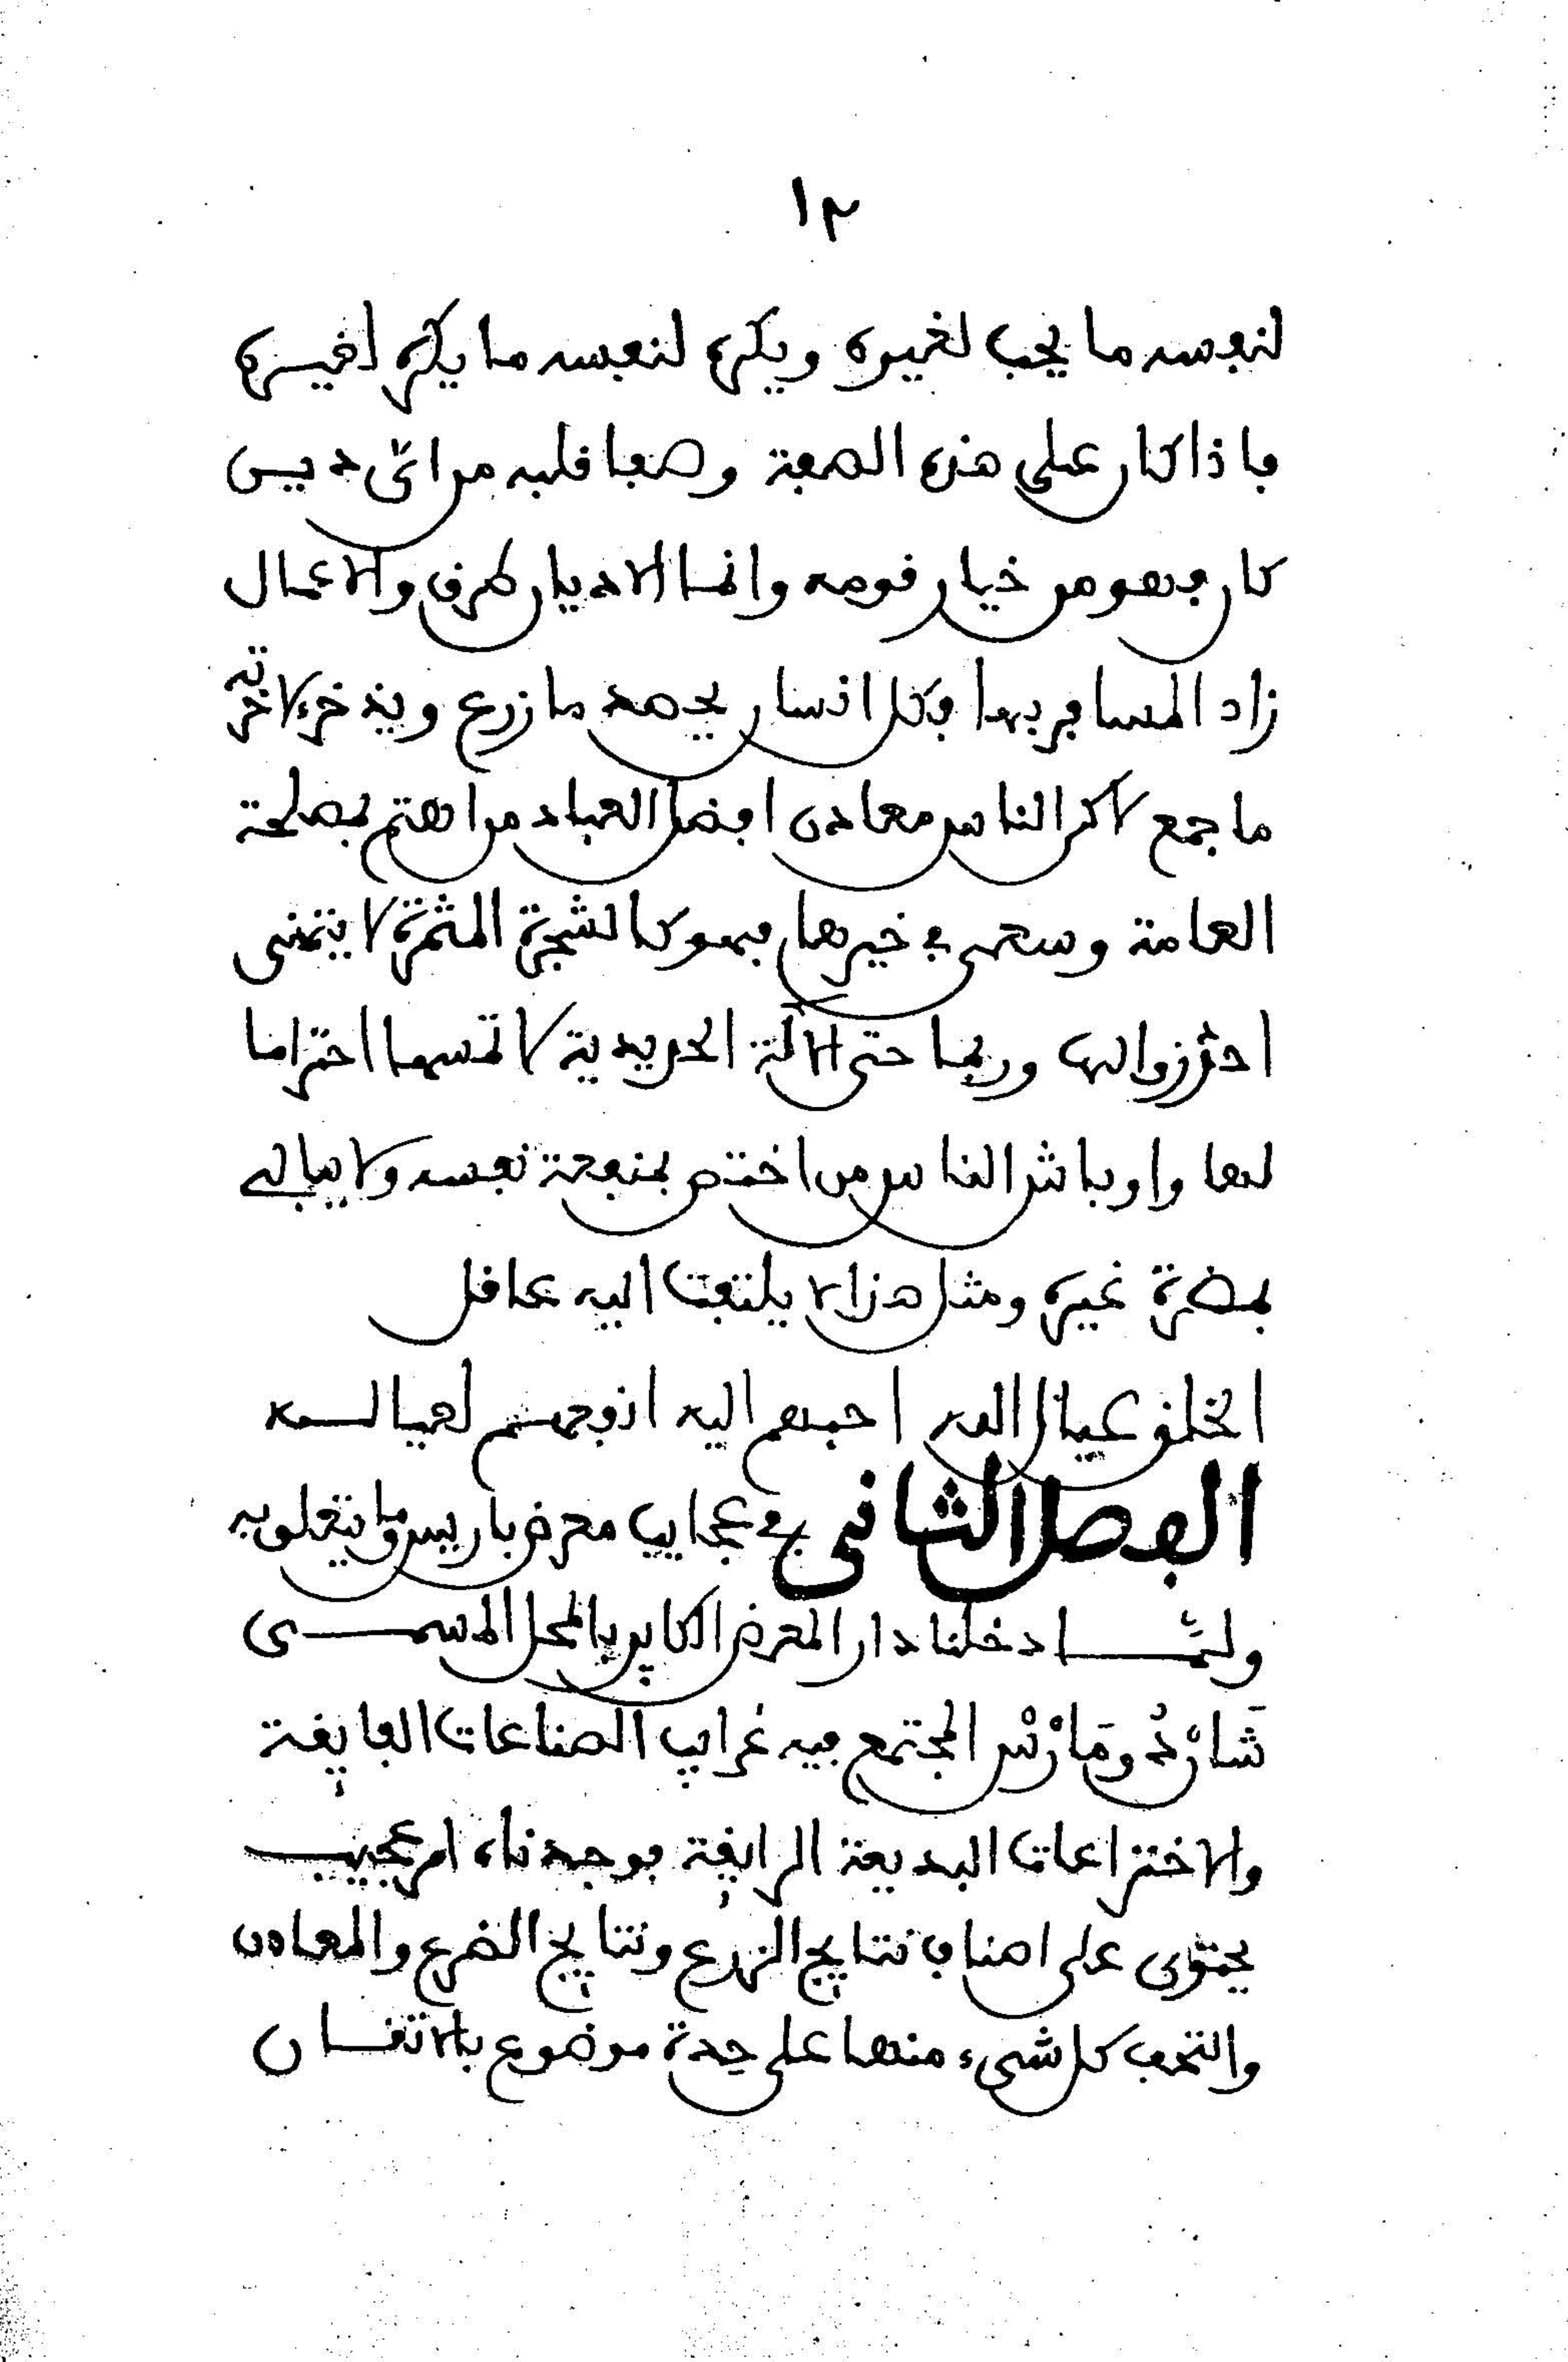 ١٢
لنفسه ما يحب لغيره ويكره لنفسه ما يكره لغيره
فاذا كان على هذه الصفة وصفا قلبه من اىّ دين
كان فهو من خيار قومه وانما الاديان طرق والاعمال
زاد المسافر بها فكل انسان يحصد ما زرع ويذخر لاخرته
ما جمع لاكن الناس معادن افضل العباد من اهتم بمصلحة
العامة وسعى في خيرها فهو كالشجرة المثمرة لا يتمنى
احد زوالها وربما حتى الآلة الحديدية لا تمسها احتراما
لها واوباش الناس من اختص بمنفعة نفسه ولا يبالي
بمضرة غيره ومثل هذا لا يلتفت اليه عاقل
الخلق عيال الله احبهم اليه انفعهم لعياله
الفصل الثاني في عجايب معرض باريس وما يتعلق به
ولمّا دخلنا دار المعرض الكاين بالمحل المسمى
شَانْ دُو مَارْسْ المجتمع فيه غرايب الصناعات الفايقة
والاختراعات البديعة الرايقة فوجدناه امر عجيب
يحتوى على اصناف نتايج الزرع ونتايج الضرع والمعادن
والتحف كل شىء منها على حِدة موضوع بالاتقان